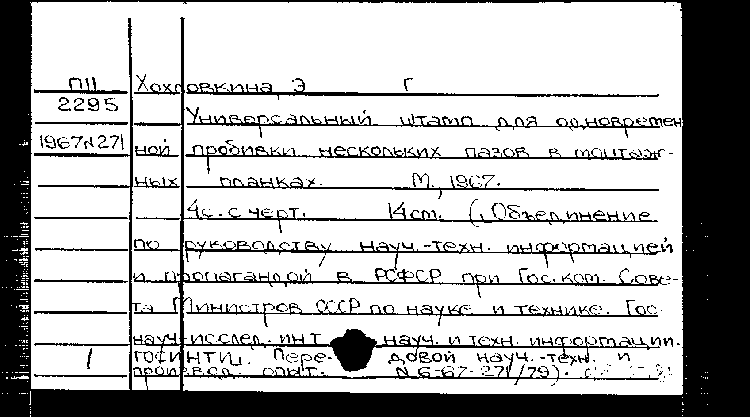 П11 Хохловкина, Э Г
2295
Универсальный штамп для одновремен
1967 N 271 ной пробивки нескольких пазов в монтаж-
ных планках. М., 1967.
4с. с черт. 14 cm. („Объединение
по руководству науч.-техн. информацией
и пропагандой в РСФСР при Гос. ком. Сове-
та Министров СССР по науке и технике. Гос.
науч-исслед. инт науч. и техн. информации.
ГОСИНТИ„. Пере- довой науч.-техн. и
1 производ. опыт. N 6-67-271/79).